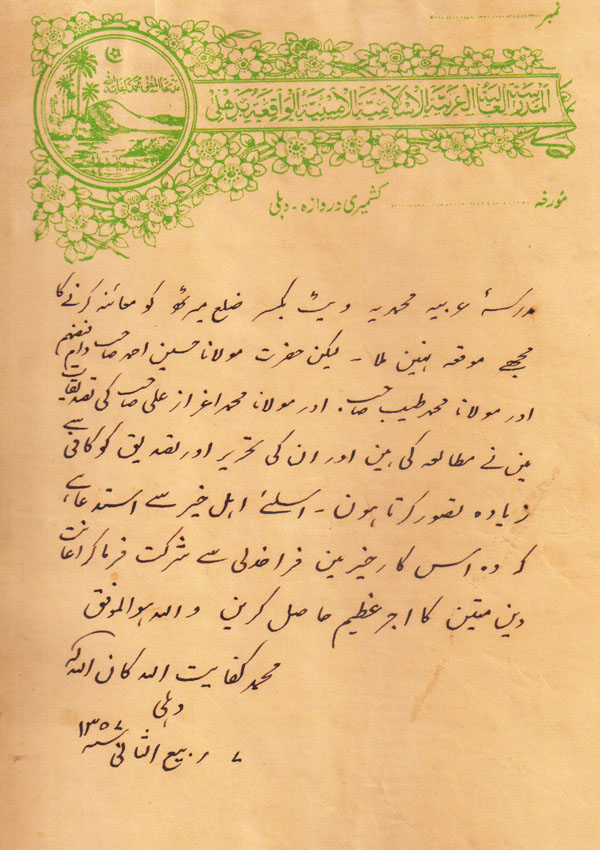 نمبر
المدرسة العالية العربية الاسلامية الامينية الواقعة بدهلى
مورخہ
کشمیری دروازہ ۔ دہلی
مدرسۂ عربیہ محمدیہ ویٹ یکسر ضلع میرٹھ کو معائنہ کرنے کا
مجھے موقعہ نہین ملا ۔ لیکن حضرت مولانا حسین احمد صاحب دام فیضہم
اور مولانا محمد طیب صاحب . اور مولانا محمد اعزاز علی صاحب کی تصدیقات
مین نے مطالعہ کی ہین اور ان کی تحریر اور تصدیق کو کافی سے
زیادہ تصور کرتا ہون ۔ اسلئے اہل خیر سے استدعا ہے
کہ وہ اس کار خیر مین فراخدلی سے شرکت فرما کر اعانت
دین متین کا اجر عظیم حاصل کرین واللہ ہو الموفق
محمد کفایت اللہ کان اللہ لہ
دہلی
۷ ربیع الثانی ۱۳۵۷